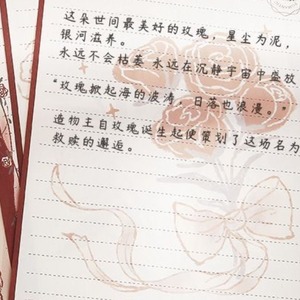 这朵世间最美好的玫瑰，星尘为泥，
银河滋养。
永远不会枯萎 永远在沉静宇宙中盛放
“玫瑰掀起海的波涛，日落也浪漫。”
造物主自玫瑰诞生起便策划了这场名为
救赎的邂逅。